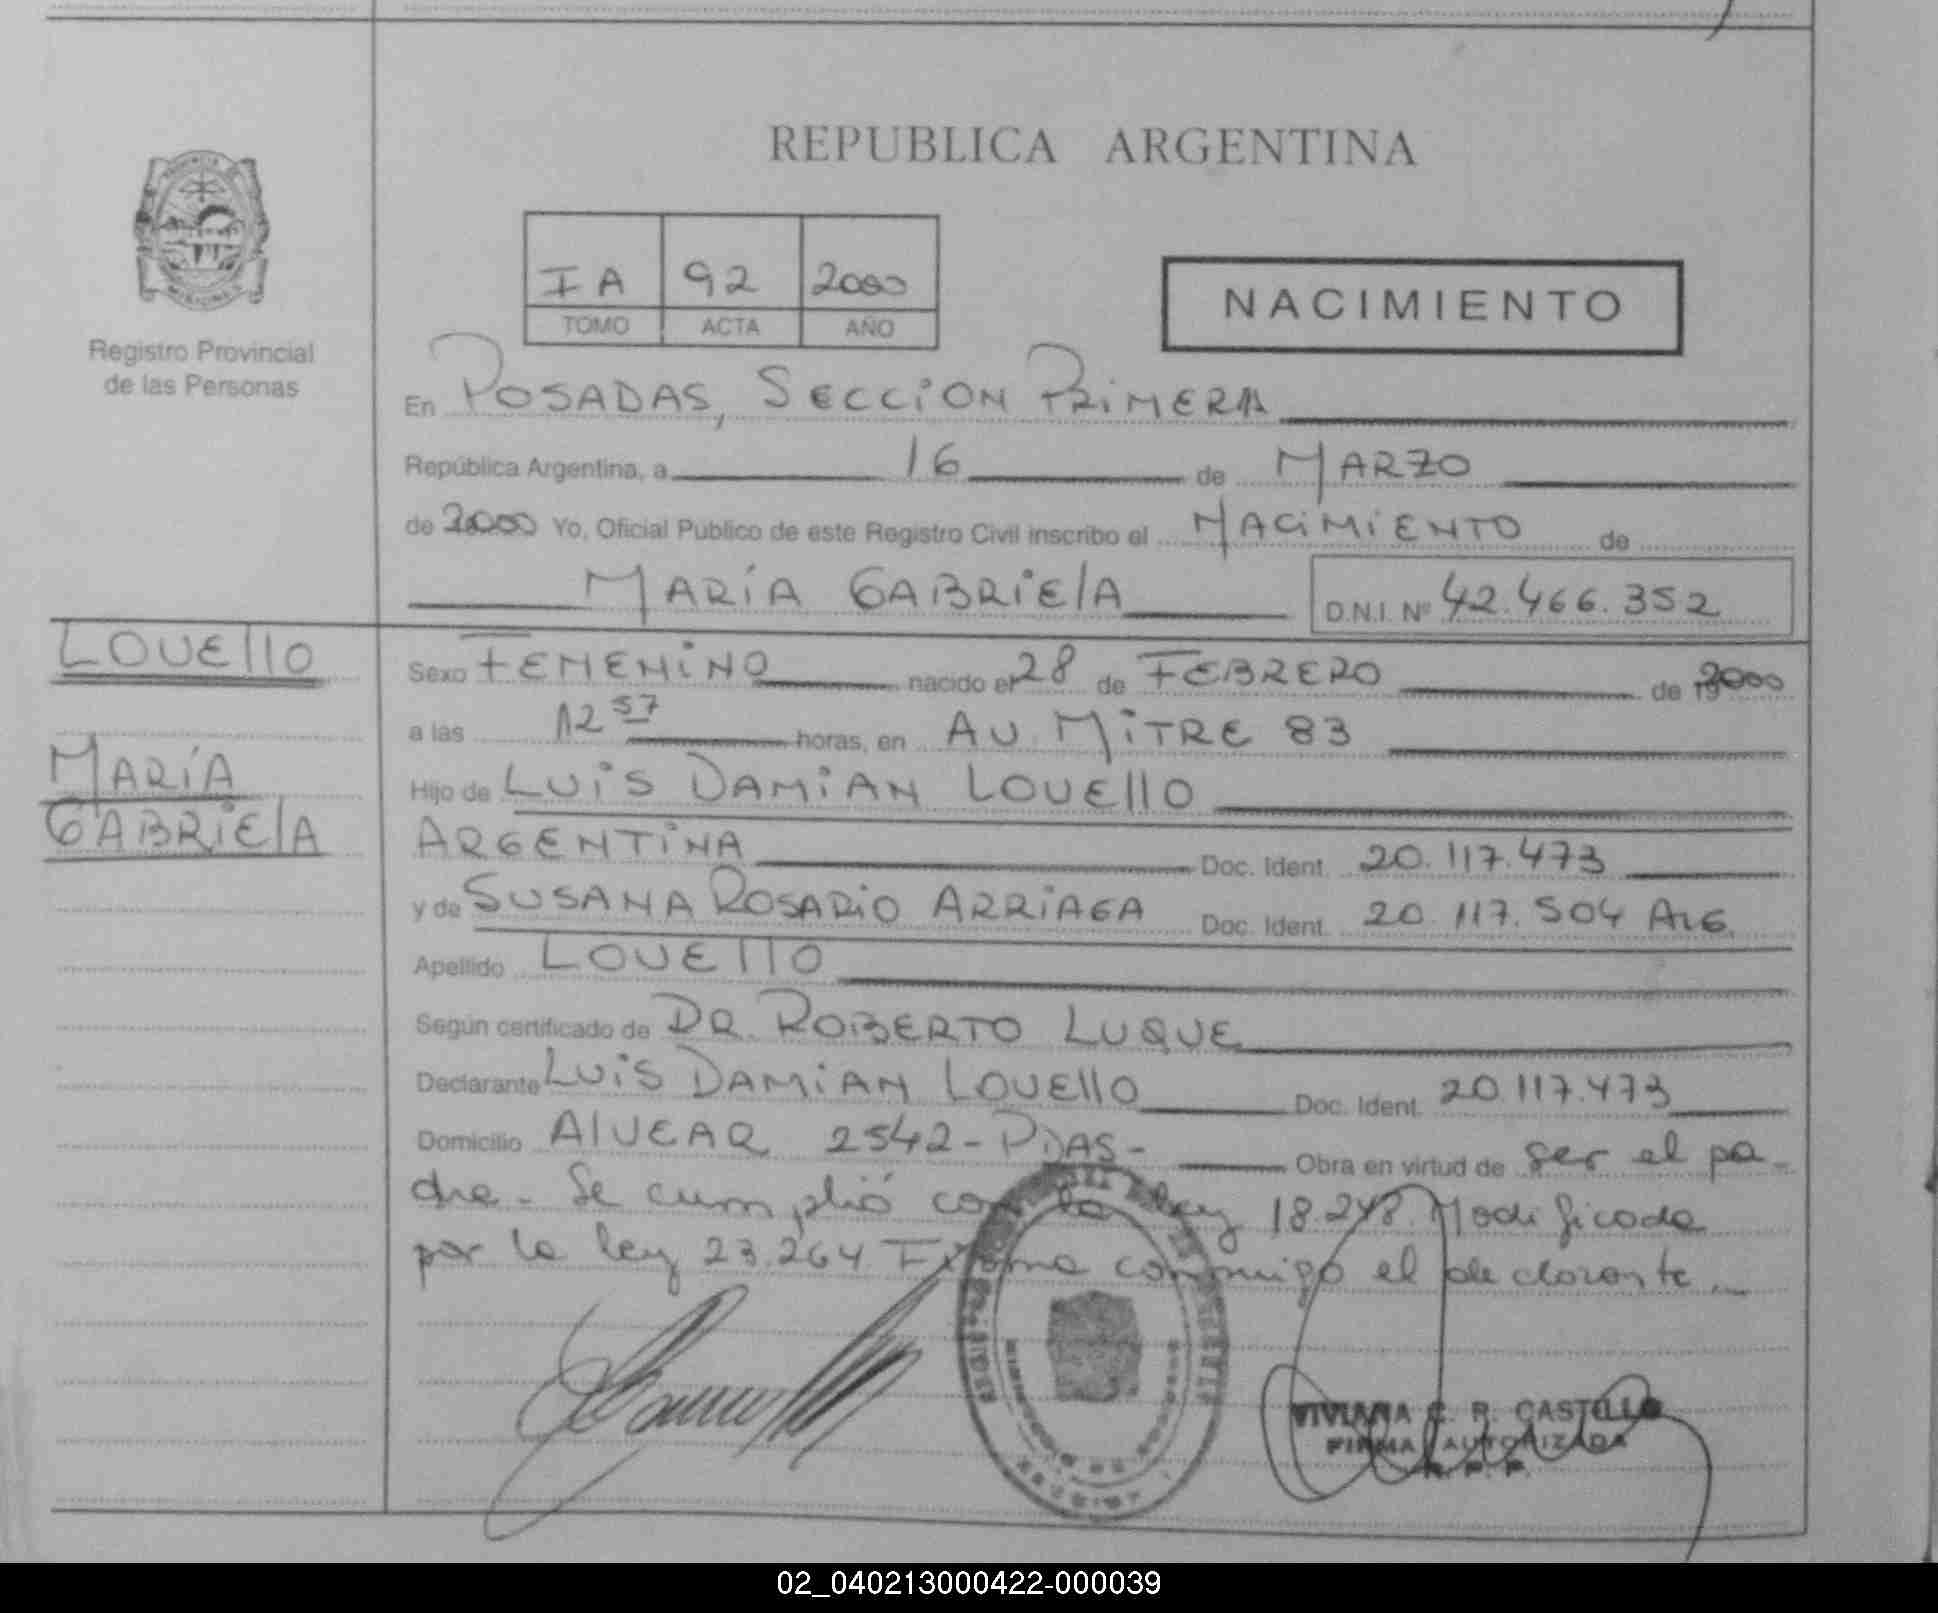 REPUBLICA ARGENTINA
IA 92 2000
TOMO ACTA AÑO
NACIMIENTO
Registro Provincial
de las Personas
En POSADAS, SECCION PRIMERA
República Argentina, a 16 de MARZO
de 2000 Yo, Oficial Publico de este Registro Civil inscribo el NACIMIENTO de
MARÍA GABRIELA D.N.I. Nº 42.466.352
LOVELLO
MARÍA
GABRIELA
Sexo FEMENINO nacido el 28 de FEBRERO de 2000
a las 12 57 horas, en AV. MITRE 83
Hijo de LUIS DAMIAN LOVELLO
ARGENTINA Doc. Ident. 20.117.473
y de SUSANA ROSARIO ARRIAGA Doc. Ident. 20.117.504 ARG.
Apellido LOVELLO
Según certificado de DR. ROBERTO LUQUE
Declarante LUIS DAMIAN LOVELLO Doc. Ident. 20.117.473
Domicilio ALVEAR 2542-PDAS- Obra en virtud de ser el pa-
dre - Se cumplió con la ley 18.248. Modificada
por la ley 23.264 Firma conmigo el declarante.
VIVIANA E. R. CASTILLO
FIRMA AUTORIZADA
R. P. P.
02_040213000422-000039